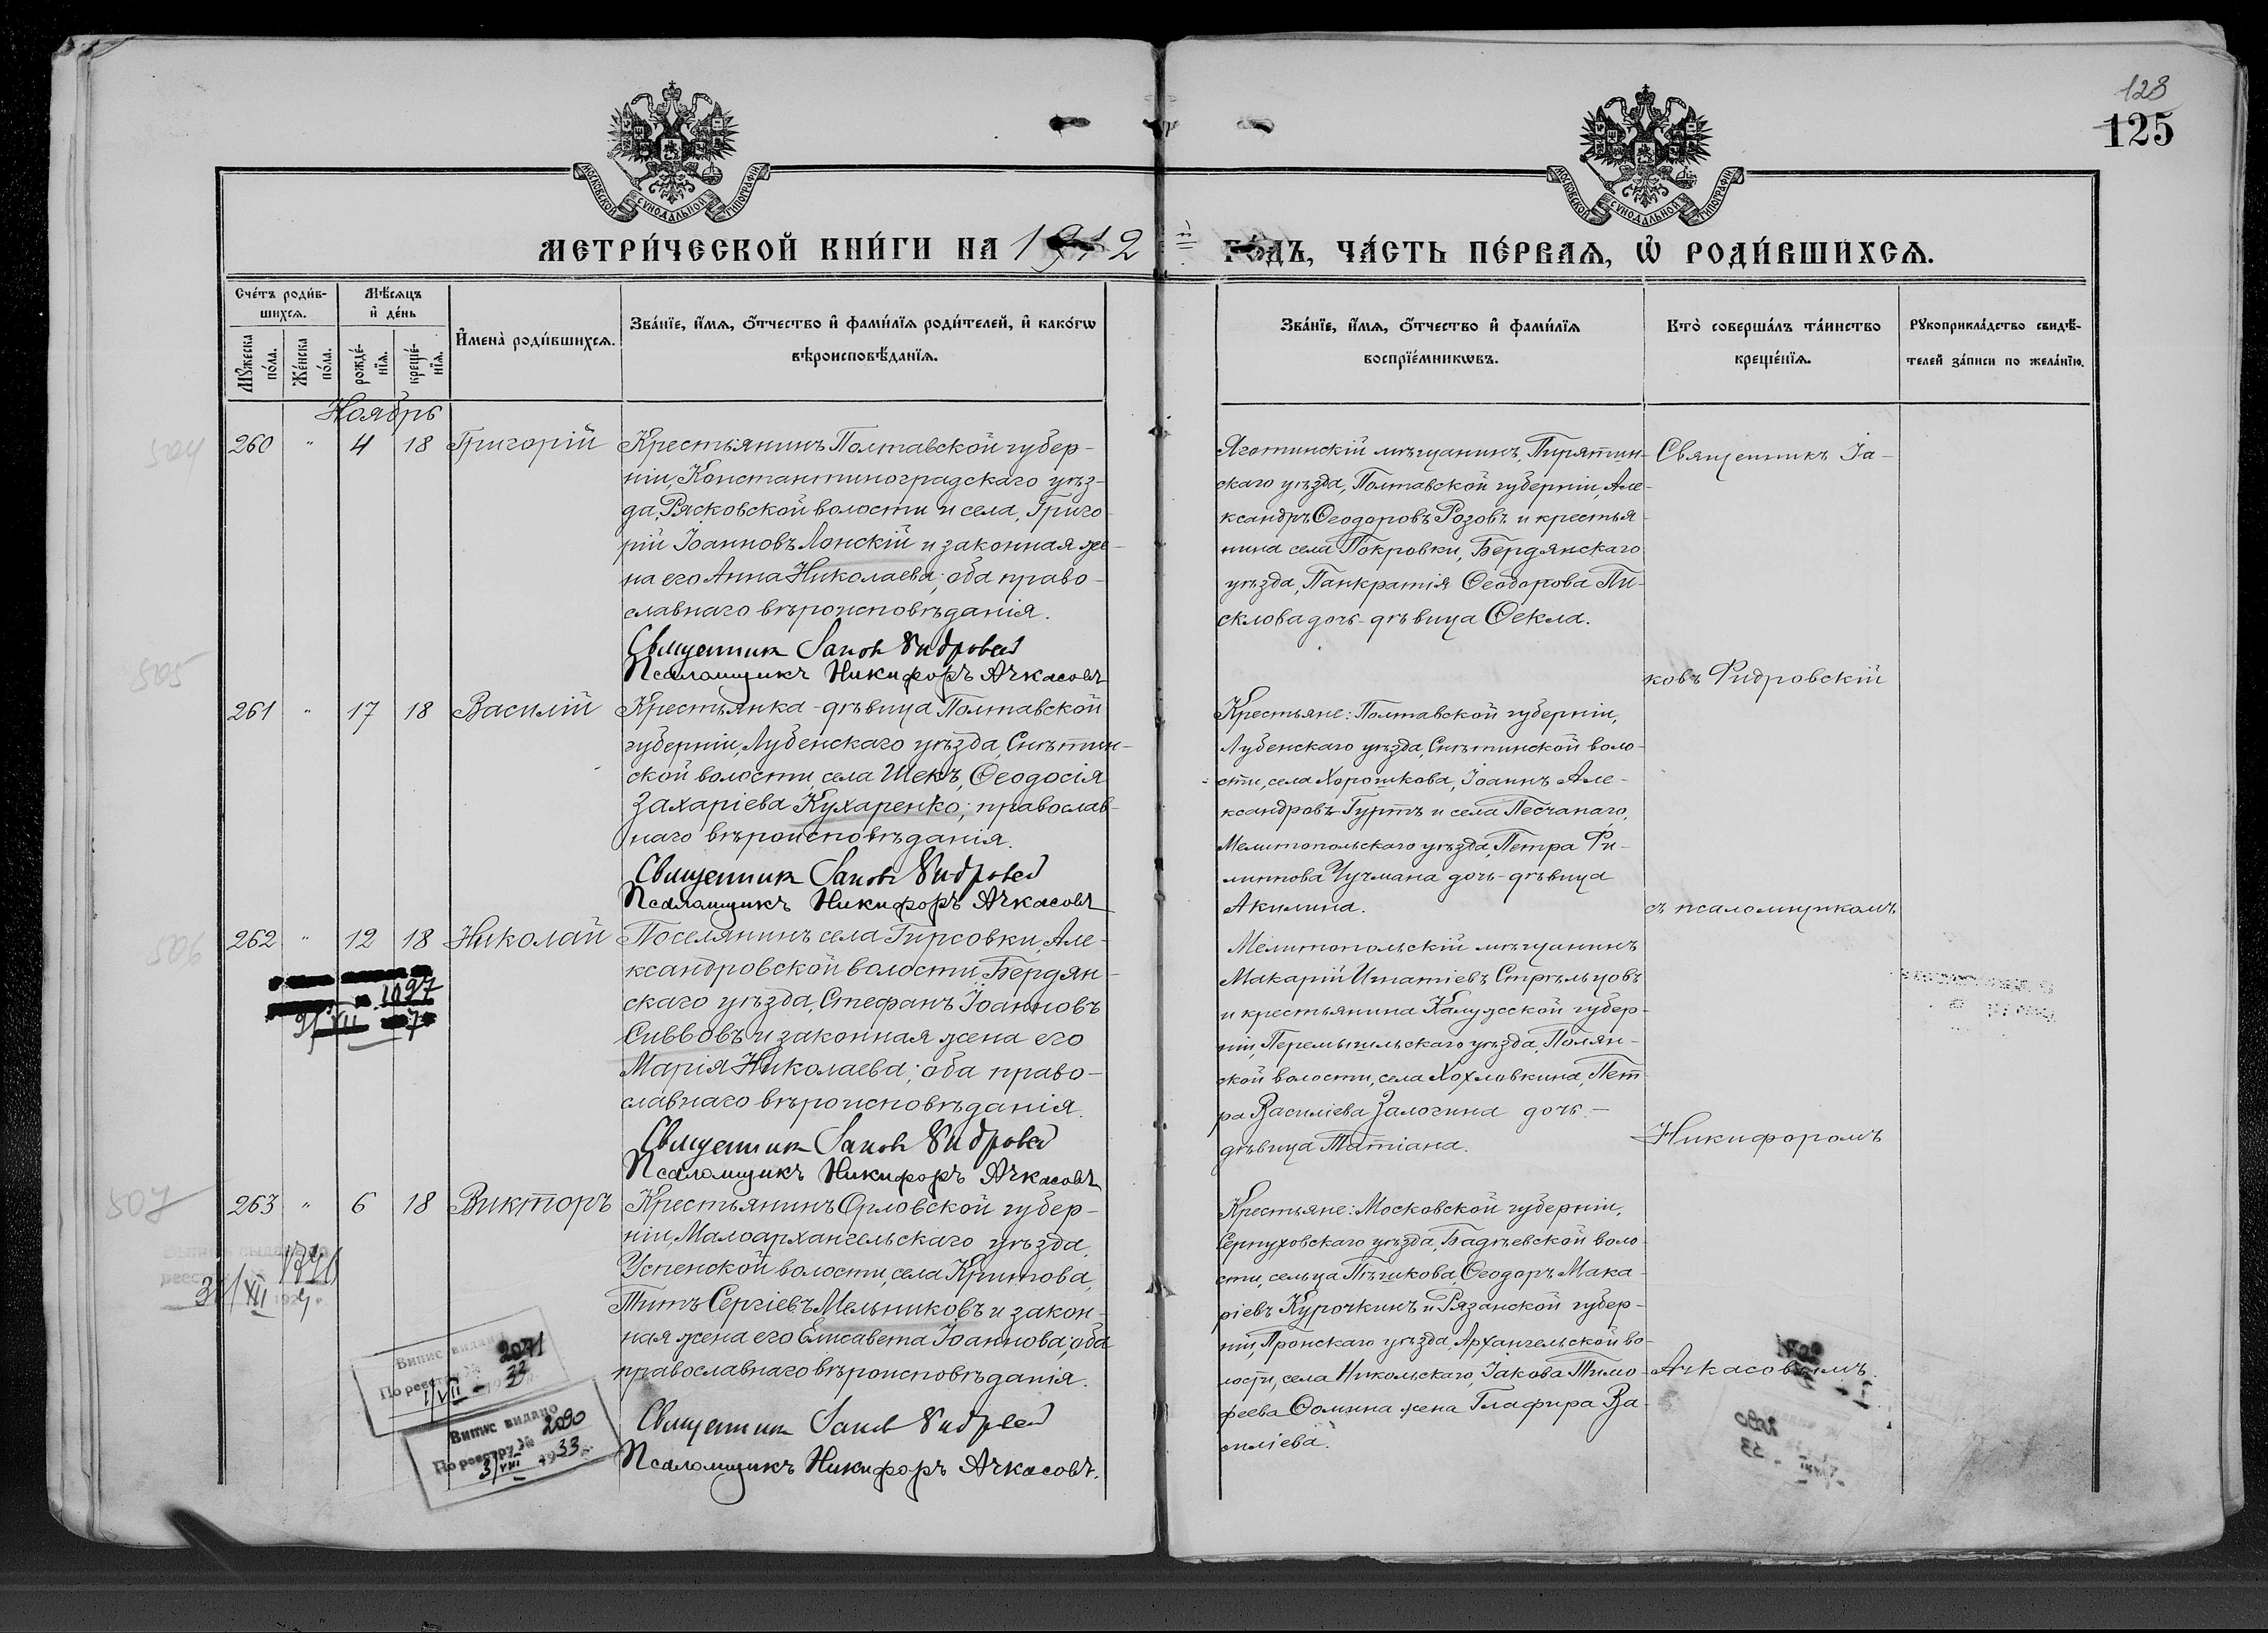 128
125
МОСКОВСКОЙ СѴНОДАЛЬНОЙ ТИПОГРАФІИ
МОСКОВСКОЙ СѴНОДАЛЬНОЙ ТИПОГРАФІИ
МЕТРИ́ЧЕСКОЙ КНИ́ГИ НА 1912 й ГО́ДЪ, ЧА́СТЬ ПЕ́РВАѦ, Ѡ҆ РОДИ́ВШИХСѦ.
Сче́тъ роди́в-
шихсѧ.
Мѣ́сѧцъ
и҆ де́нь
Мꙋ́жеска по́ла.
Же́нска по́ла.
рожде́-нїѧ.
креще́-нїѧ.
И҆мена̀ роди́вшихсѧ.
Зва́нїе, и҆́мѧ, о҆́тчество и҆ фами́лїѧ роди́телей, и҆ како́гѡ
вѣроисповѣ́данїѧ.
Зва́нїе, и҆́мѧ, о҆́тчество и҆ фами́лїѧ
воспрїе́мникѡвъ.
Кто̀ соверша́лъ та́инство
креще́нїѧ.
Рꙋкоприкла́дство свидѣ́-
телей за́писи по жела́нїю.
Ноябрь
504
260 " 4 18 Григорій
Крестьянинъ Полтавской губер-
ніи, Константиноградскаго уѣз-
да, Рясковской волости и села, Григо-
рій Іоанновъ Лонскій и законная же-
на его Анна Николаева; оба право-
славнаго вѣроисповѣданія.
Священникъ Іаковъ Фидровскій
Псаломщикъ Никифоръ Ачкасовъ
Яготинскій мѣщанинъ, Пирятин-
скаго уѣзда, Полтавской губерніи, Але-
ксандръ Ѳеодоровъ Розовъ и крестья-
нина села Покровки, Бердянскаго
уѣзда, Панкратія Ѳеодорова Пи-
склова дочь-дѣвица Ѳекла.
Священникъ Іа-
ковъ Фидровскій
505
261 " 17 18 Василій
Крестьянка-дѣвица Полтавской
губерніи, Лубенскаго уѣзда, Снѣтин-
ской волости, села Шекъ, Ѳеодосія
Захаріева Кухаренко; православ-
наго вѣроисповѣданія.
Священникъ Іаковъ Фидровскій
Псаломщикъ Никифоръ Ачкасовъ
Крестьяне: Полтавской губерніи,
Лубенскаго уѣзда, Снѣтинской воло-
сти, села Хорошкова, Іоаннъ Але-
ксандровъ Гуртъ и села Песчанаго,
Мелитопольскаго уѣзда, Петра Фи-
липпова Чучмана дочь-дѣвица
Акилина.
съ псаломщикомъ
506
262 " 12 18 Николай
1097
31/XII 7
Поселянинъ села Гирсовки, Але-
ксандровской волости, Бердян-
скаго уѣзда, Стефанъ Іоанновъ
Сиввовъ и законная жена его
Марія Николаева; оба право-
славнаго вѣроисповѣданія.
Священникъ Іаковъ Фидровскій
Псаломщикъ Никифоръ Ачкасовъ
Мелитопольскій мѣщанинъ
Макарій Игнатіевъ Стрѣльцовъ
и крестьянина Калужской губер-
ніи, Перемышльскаго уѣзда, Полян-
ской волости, села Хохловкина, Пет-
ра Василіева Залогина дочь-
дѣвица Татіана.
Никифоромъ
507
263 " 6 18 Викторъ
Крестьянинъ Орловской губер-
ніи, Малоархангельскаго уѣзда,
Успенской волости, села Критова,
Титъ Сергіевъ Мельниковъ и закон-
ная жена его Елисавета Іоаннова; оба
православнаго вѣроисповѣданія.
Священникъ Іаковъ Фидровскій
Псаломщикъ Никифоръ Ачкасовъ.
Крестьяне: Московской губерніи,
Серпуховскаго уѣзда, Бадѣевской воло-
сти, сельца Пѣшкова, Ѳеодоръ Мака-
ріевъ Курочкинъ и Рязанской губер-
ніи, Пронскаго уѣзда, Архангельской во-
лости, села Никольскаго, Іакова Тимо-
феева Ѳомина жена Глафира Ва-
силіева.
Ачкасовымъ.
Випис видано
По реестру № 2071
1/VII - 1933 г.
Випис видано
По реестру № 2090
3/VIII - 1933 г.